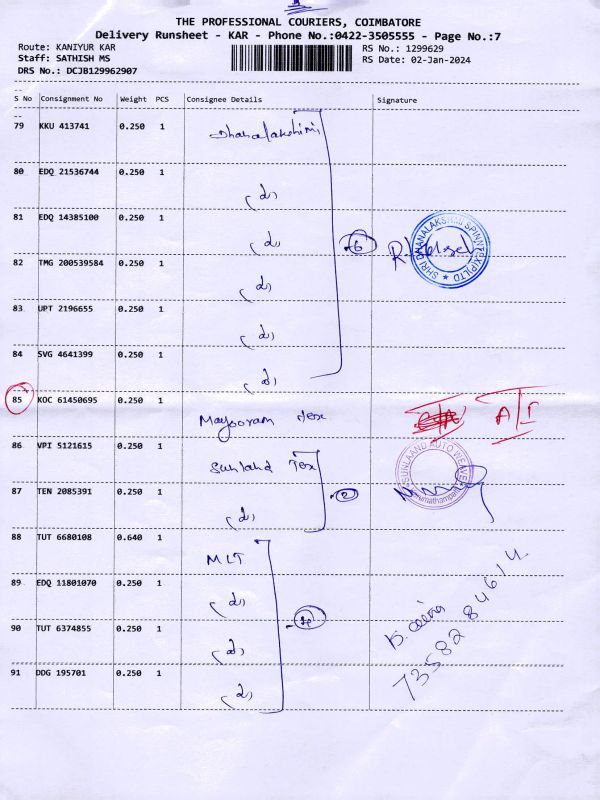 THE PROFESSIONAL COURIERS, COIMBATORE
Delivery Runsheet - KAR - Phone No.:0422-3505555 - Page No.:7
Route: KANIYUR KAR
Staff: SATHISH MS
DRS No.: DCJB129962907
RS No.: 1299629
RS Date: 02-Jan-2024
S No Consignment No Weight PCS Consignee Details Signature
79 KKU 413741 0.250 1 Dhanalakshimi
80 EDQ 21536744 0.250 1
(d)
81 EDQ 14385100 0.250 1
(d)
6
SHRI DHANALAKSHMI SPINNTEX (P) LTD
82 TMG 200539584 0.250 1
(d)
83 UPT 2196655 0.250 1
(d)
84 SVG 4641399 0.250 1
(d)
85 KOC 61450695 0.250 1
Mayooram tex
A/I
86 VPI 5121615 0.250 1
Sunland Tex
SUNLAAND AUTO WEAVE
87 TEN 2085391 0.250 1
(d)
2
88 TUT 6680108 0.640 1
MLT
89 EDQ 11801070 0.250 1
(d)
90 TUT 6374855 0.250 1
(d)
91 DDG 195701 0.250 1
(d)
73582 84614